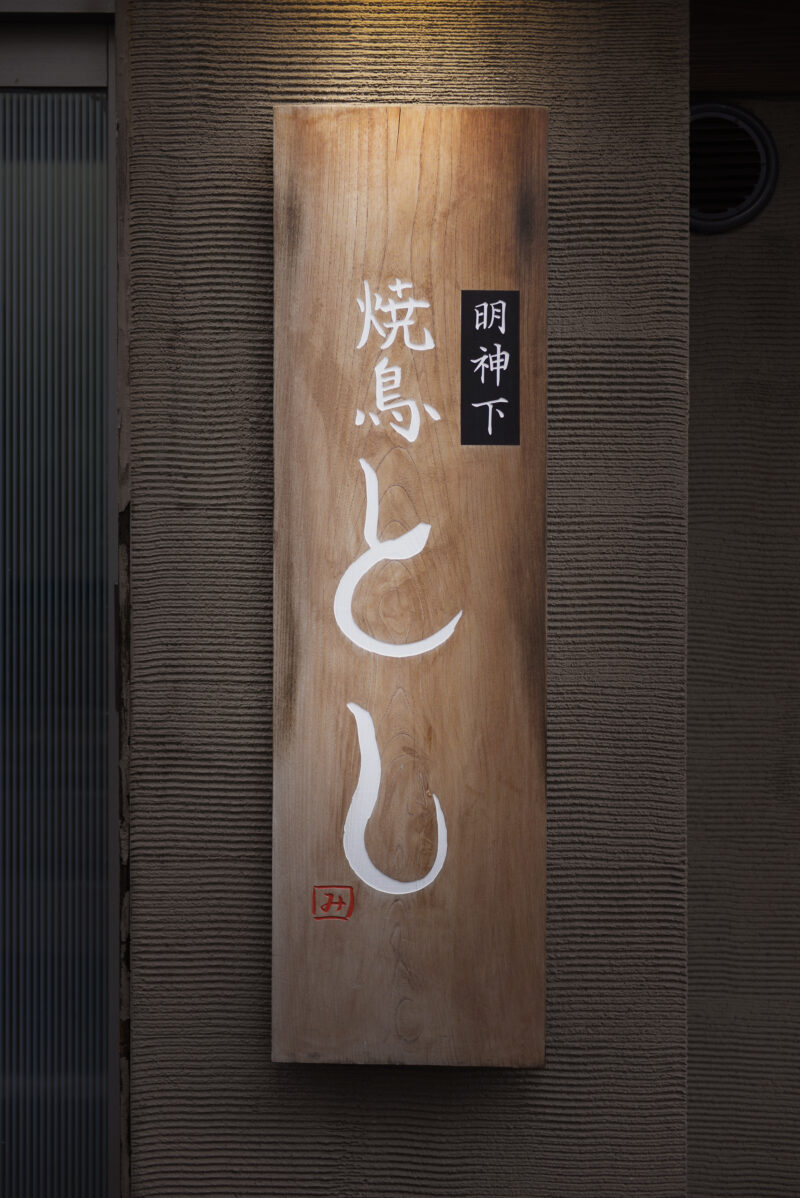 明神下
焼鳥とし
み